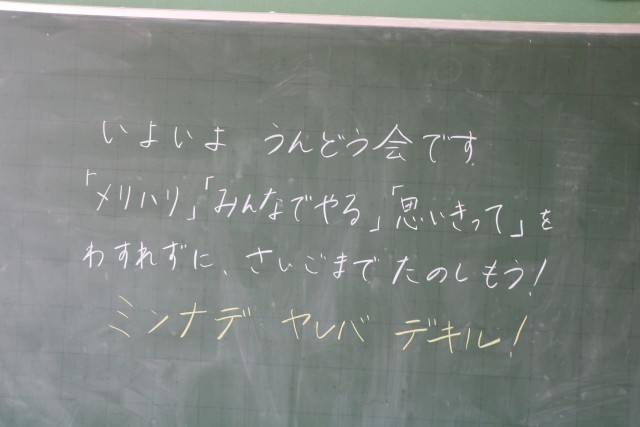 いよいよ うんどう会です
「メリハリ」「みんなでやる」「思いきって」を
わすれずに、さいごまで たのしもう!
ミンナデ ヤレバ デキル!